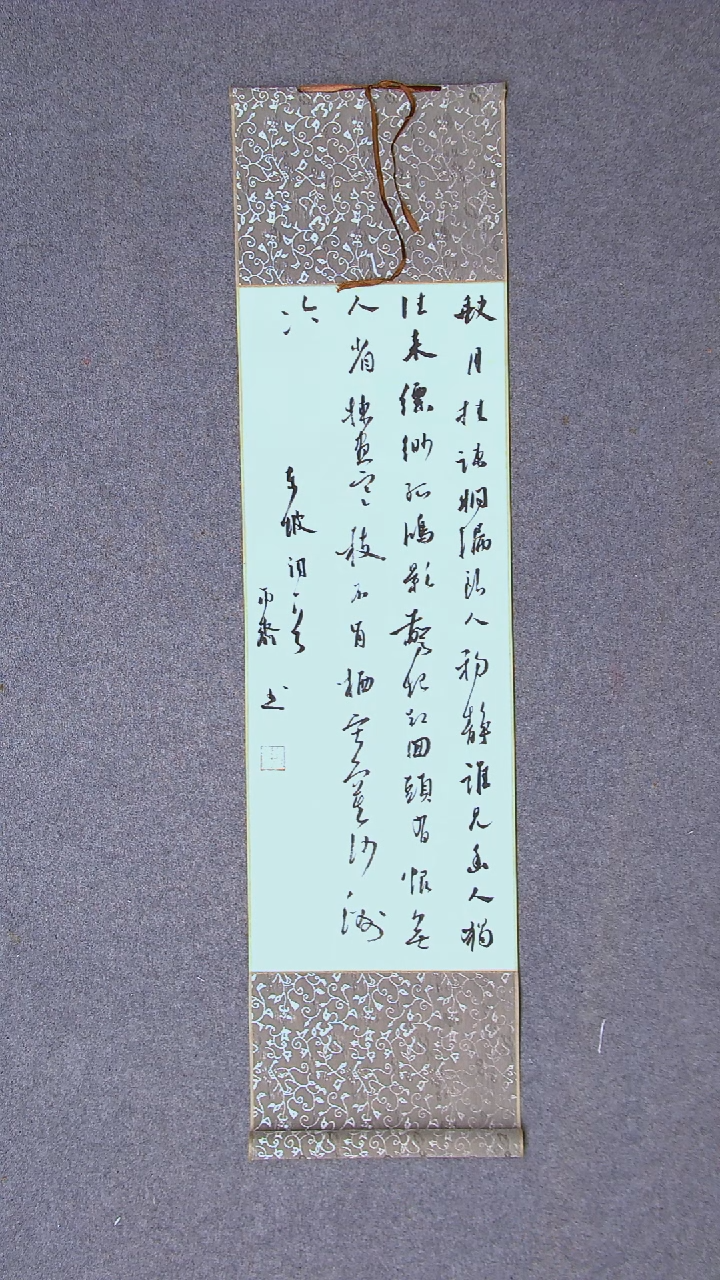 缺月挂疏桐漏断人初静谁见幽人独
往来缥缈孤鸿影惊起却回头有恨无
人省拣尽寒枝不肯栖寂寞沙洲
冷
东坡词一首
雨斋 书